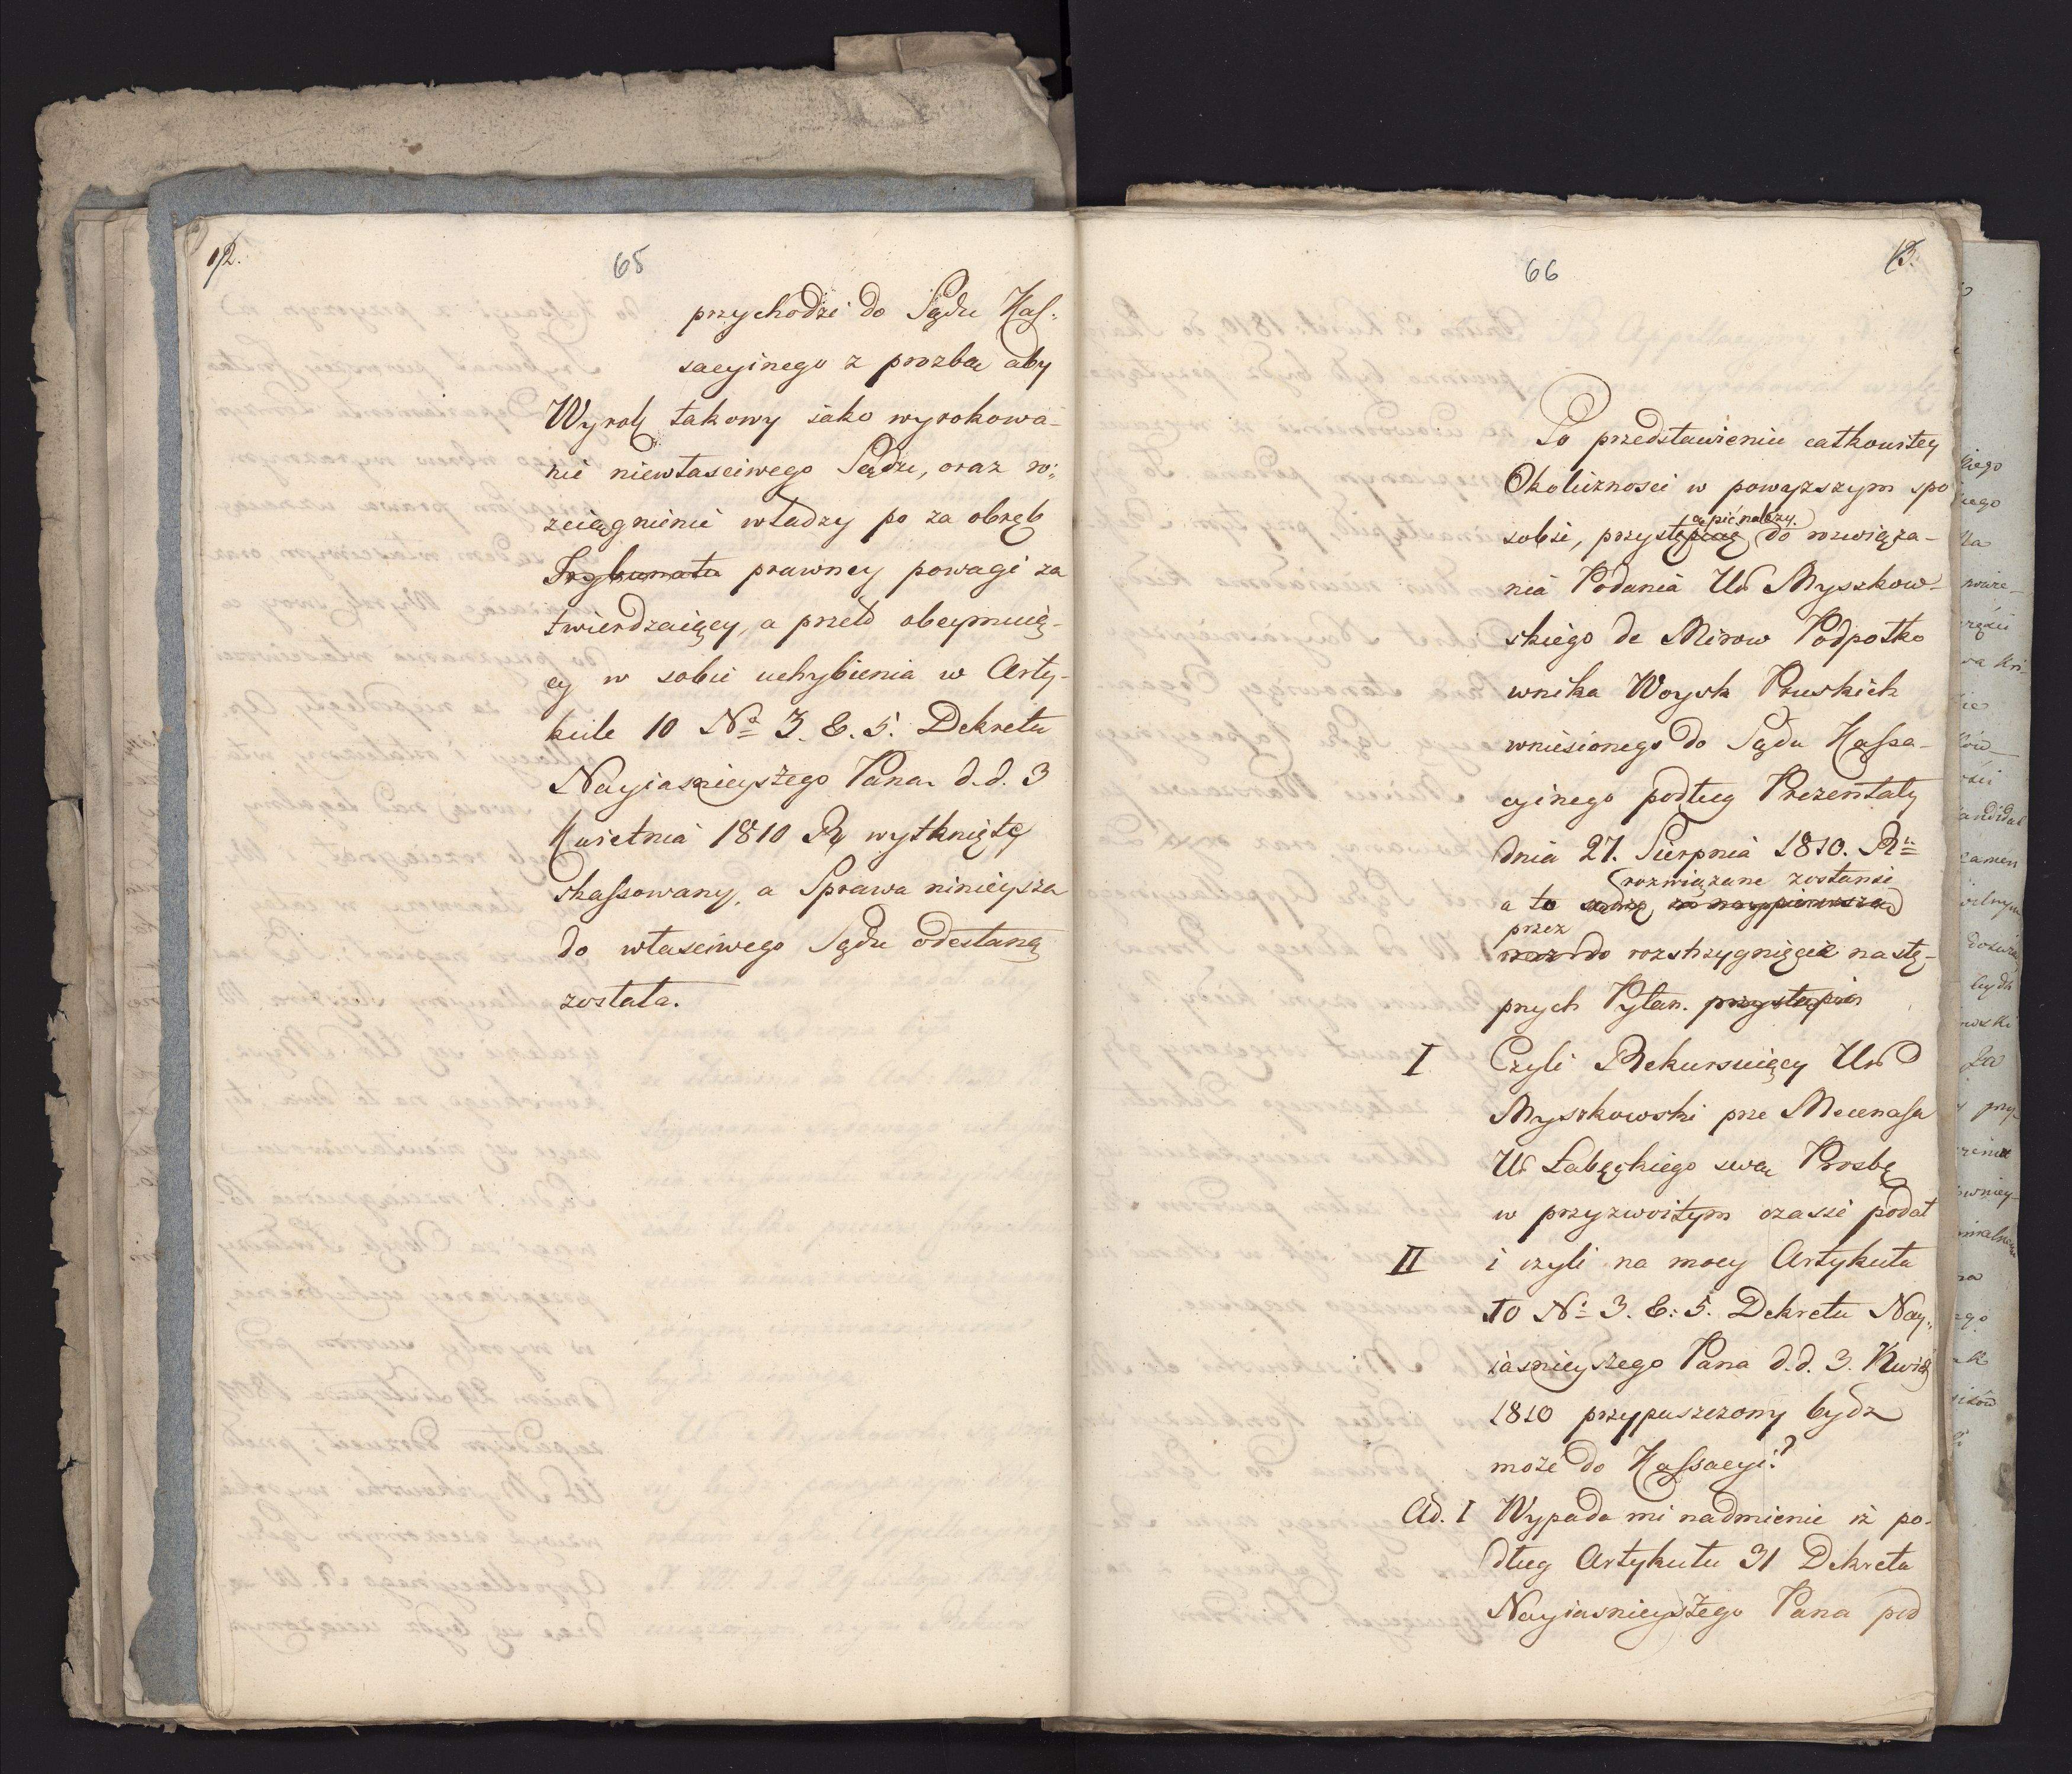 12.
65
przychodzi do Sądu Kas:
sacyinego z prozbą aby
Wyrok takowy iako wyrokowa-
nie niewłasciwego Sądu, oraz ro:
zciągnienie władzy po za obręb
Trybunatu prawney powagi za
twierdzaiący, a przeto obeymuią-
cy w sobie uchybienia w Arty-
kule 10 No 3. & 5. Dekretu
Nayiasnieyszego Pana d.d. 3
Kwietnia 1810 R. wytknięte
skassowany, a Sprawa ninieysza
do własciwego Sądu odesłaną
została.
66
13.
Po przedstawieniu całkowitey
Okolicznosci w powyższym spo
sobie, przystępuię do rozwiąza-
ąpić należy.
nia Podania Ur Myszkow-
skiego de Mirow Podpołko
wnika Woysk Pruskich
wniesionego do Sądu Kassa-
cyinego podług Prezentaty
dnia 27. Sierpnia 1810. R.
rozwiązane zostanie
a to sądzę naypierwsza
przez
do rozstrzygnięcie nastę-
pnych Pytan. przystąpić
I Czyli Rekursuiący Ur
Myszkowski prze Mecenasa
Ur Łabęckiego swą Prosbę
w przyzwoitym czasie podał
II i czyli na mocy Artykułu
10 No 3. & 5. Dekretu Nay:
iasnieyszego Pana d.d. 3. Kwie
1810 przypuszczony bydz
może do Kassacyi?
Ad. I Wypada mi nadmienic iż po-
dług Artykułu 31 Dekretu
Nayiasnieyszego Pana pod